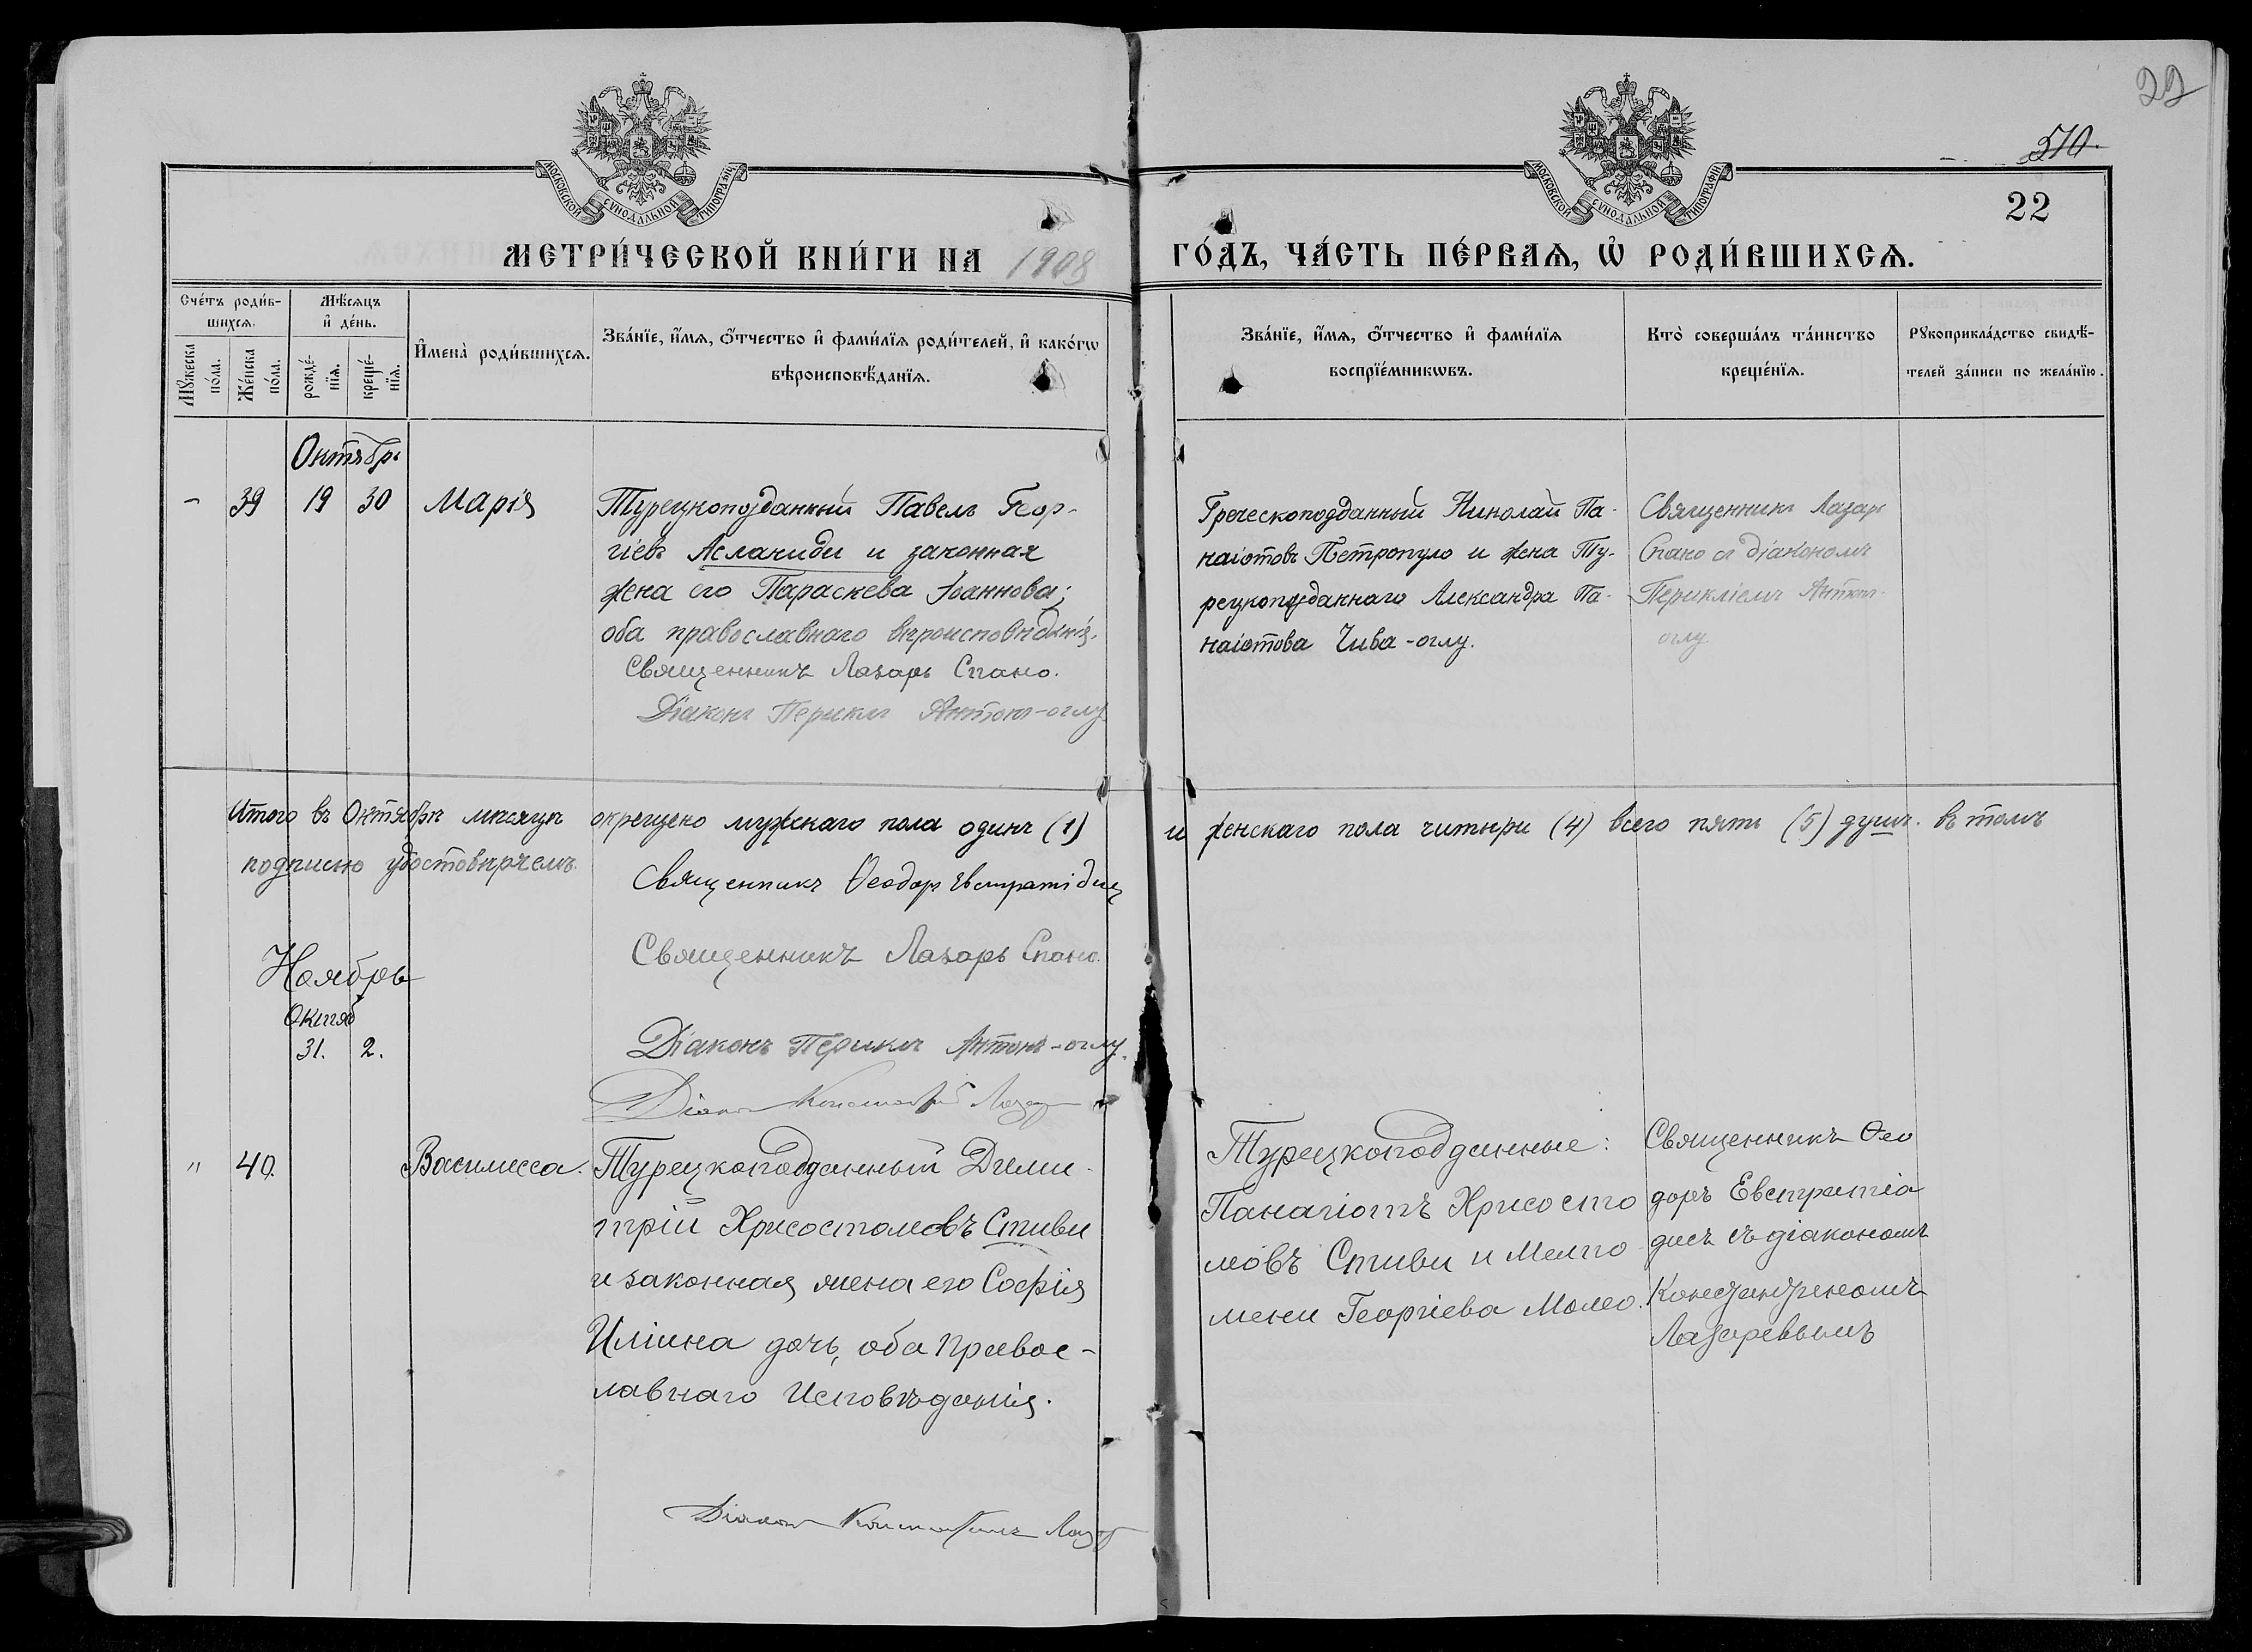 22
510.
МОСКОВСКОЙ СѴНОДАЛЬНОЙ ТИПОГРАФІИ.
МОСКОВСКОЙ СѴНОДАЛЬНОЙ ТИПОГРАФІИ.
22
МЕТРИ́ЧЕСКОЙ КНИ́ГИ НА 1908 ГО́ДЪ, ЧА́СТЬ ПЕ́РВАѦ, Ѡ҆ РОДИ́ВШИХСѦ.
Сче́тъ роди́в-
шихсѧ.
Мѣ́сѧцъ
и҆ де́нь.
Мꙋ́жеска
по́ла.
Же́нска
по́ла.
рожде́-
нїѧ.
креще́-
нїѧ.
И҆мена̀ роди́вшихсѧ.
Зва́нїе, и҆́мѧ, ѻ҆́тчество и҆ фами́лїѧ роди́телей, и҆ како́гѡ
вѣроисповѣ́данїѧ.
Зва́нїе, и҆́мѧ, ѻ҆́тчество и҆ фами́лїѧ
воспрїе́мникѡвъ.
Кто̀ соверша́лъ та́инство
креще́нїѧ.
Рꙋкоприкла́дство свидѣ́-
телей за́писи по жела́нїю.
Октябрь
- 39 19 30 Марія
Турецкоподданный Павелъ Геор-
гіевъ Асланиди и законная
жена его Параскева Іоаннова;
оба православнаго вѣроисповѣданія.
Священникъ Лазарь Спано.
Діаконъ Периклъ Антонъ-оглу
Греческоподданный Николай Па-
наіотовъ Петропуло и жена Ту-
рецкоподданнаго Александра Па-
наіотова Чива-оглу.
Священникъ Лазарь
Спано съ діакономъ
Перикліемъ Антон-
оглу
Итого въ Октябрѣ мѣсяцѣ окрещено мужскаго пола одинъ (1) и женскаго пола читыри (4) всего пять (5) душъ. въ томъ
подписью удостовѣряемъ.
Священникъ Ѳеодоръ Евстратіадисъ
Священникъ Лазарь Спано.
Ноябрь
Октяб
31. 2.
Діаконъ Периклъ Антонъ-оглу.
Діаконъ Константинъ Лазар
" 40. Василисса.
Турецкоподданный Дими-
трій Хрисостомовъ Стиви
и законная жена его Софія
Иліина дочь, оба Правос-
лавнаго Исповѣданія.
Діаконъ Константинъ Лазар
Турецкоподданные:
Панагіотъ Хрисосто
мовъ Стиви и Мельпо
мени Георгіева Молео.
Священникъ Ѳео
доръ Евстратіа
дисъ съ діакономъ
Константиномъ
Лазаревымъ